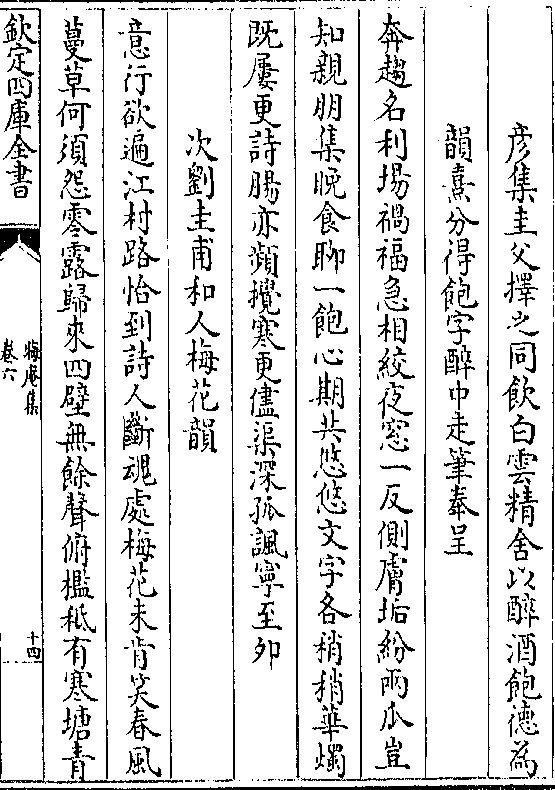 彦集圭父擇之同飲白雲精舍以醉酒飽德為
韻熹分得飽字醉中走筆奉呈
奔趨名利場禍福急相絞夜窓一反側膚垢紛兩瓜豈
知親朋集晚食聊一飽心期共悠悠文字各稍稍華燭
既屢更詩腸亦頻攪寒更儘渠深孤諷寧至夘
次劉圭甫和人梅花韻
意行欲遍江村路恰到詩人斷魂處梅花未肯笑春風
蔓草何須怨零露歸來四壁無餘聲俯檻秪有寒塘青
欽定四庫全書
晦庵集
卷六
十四